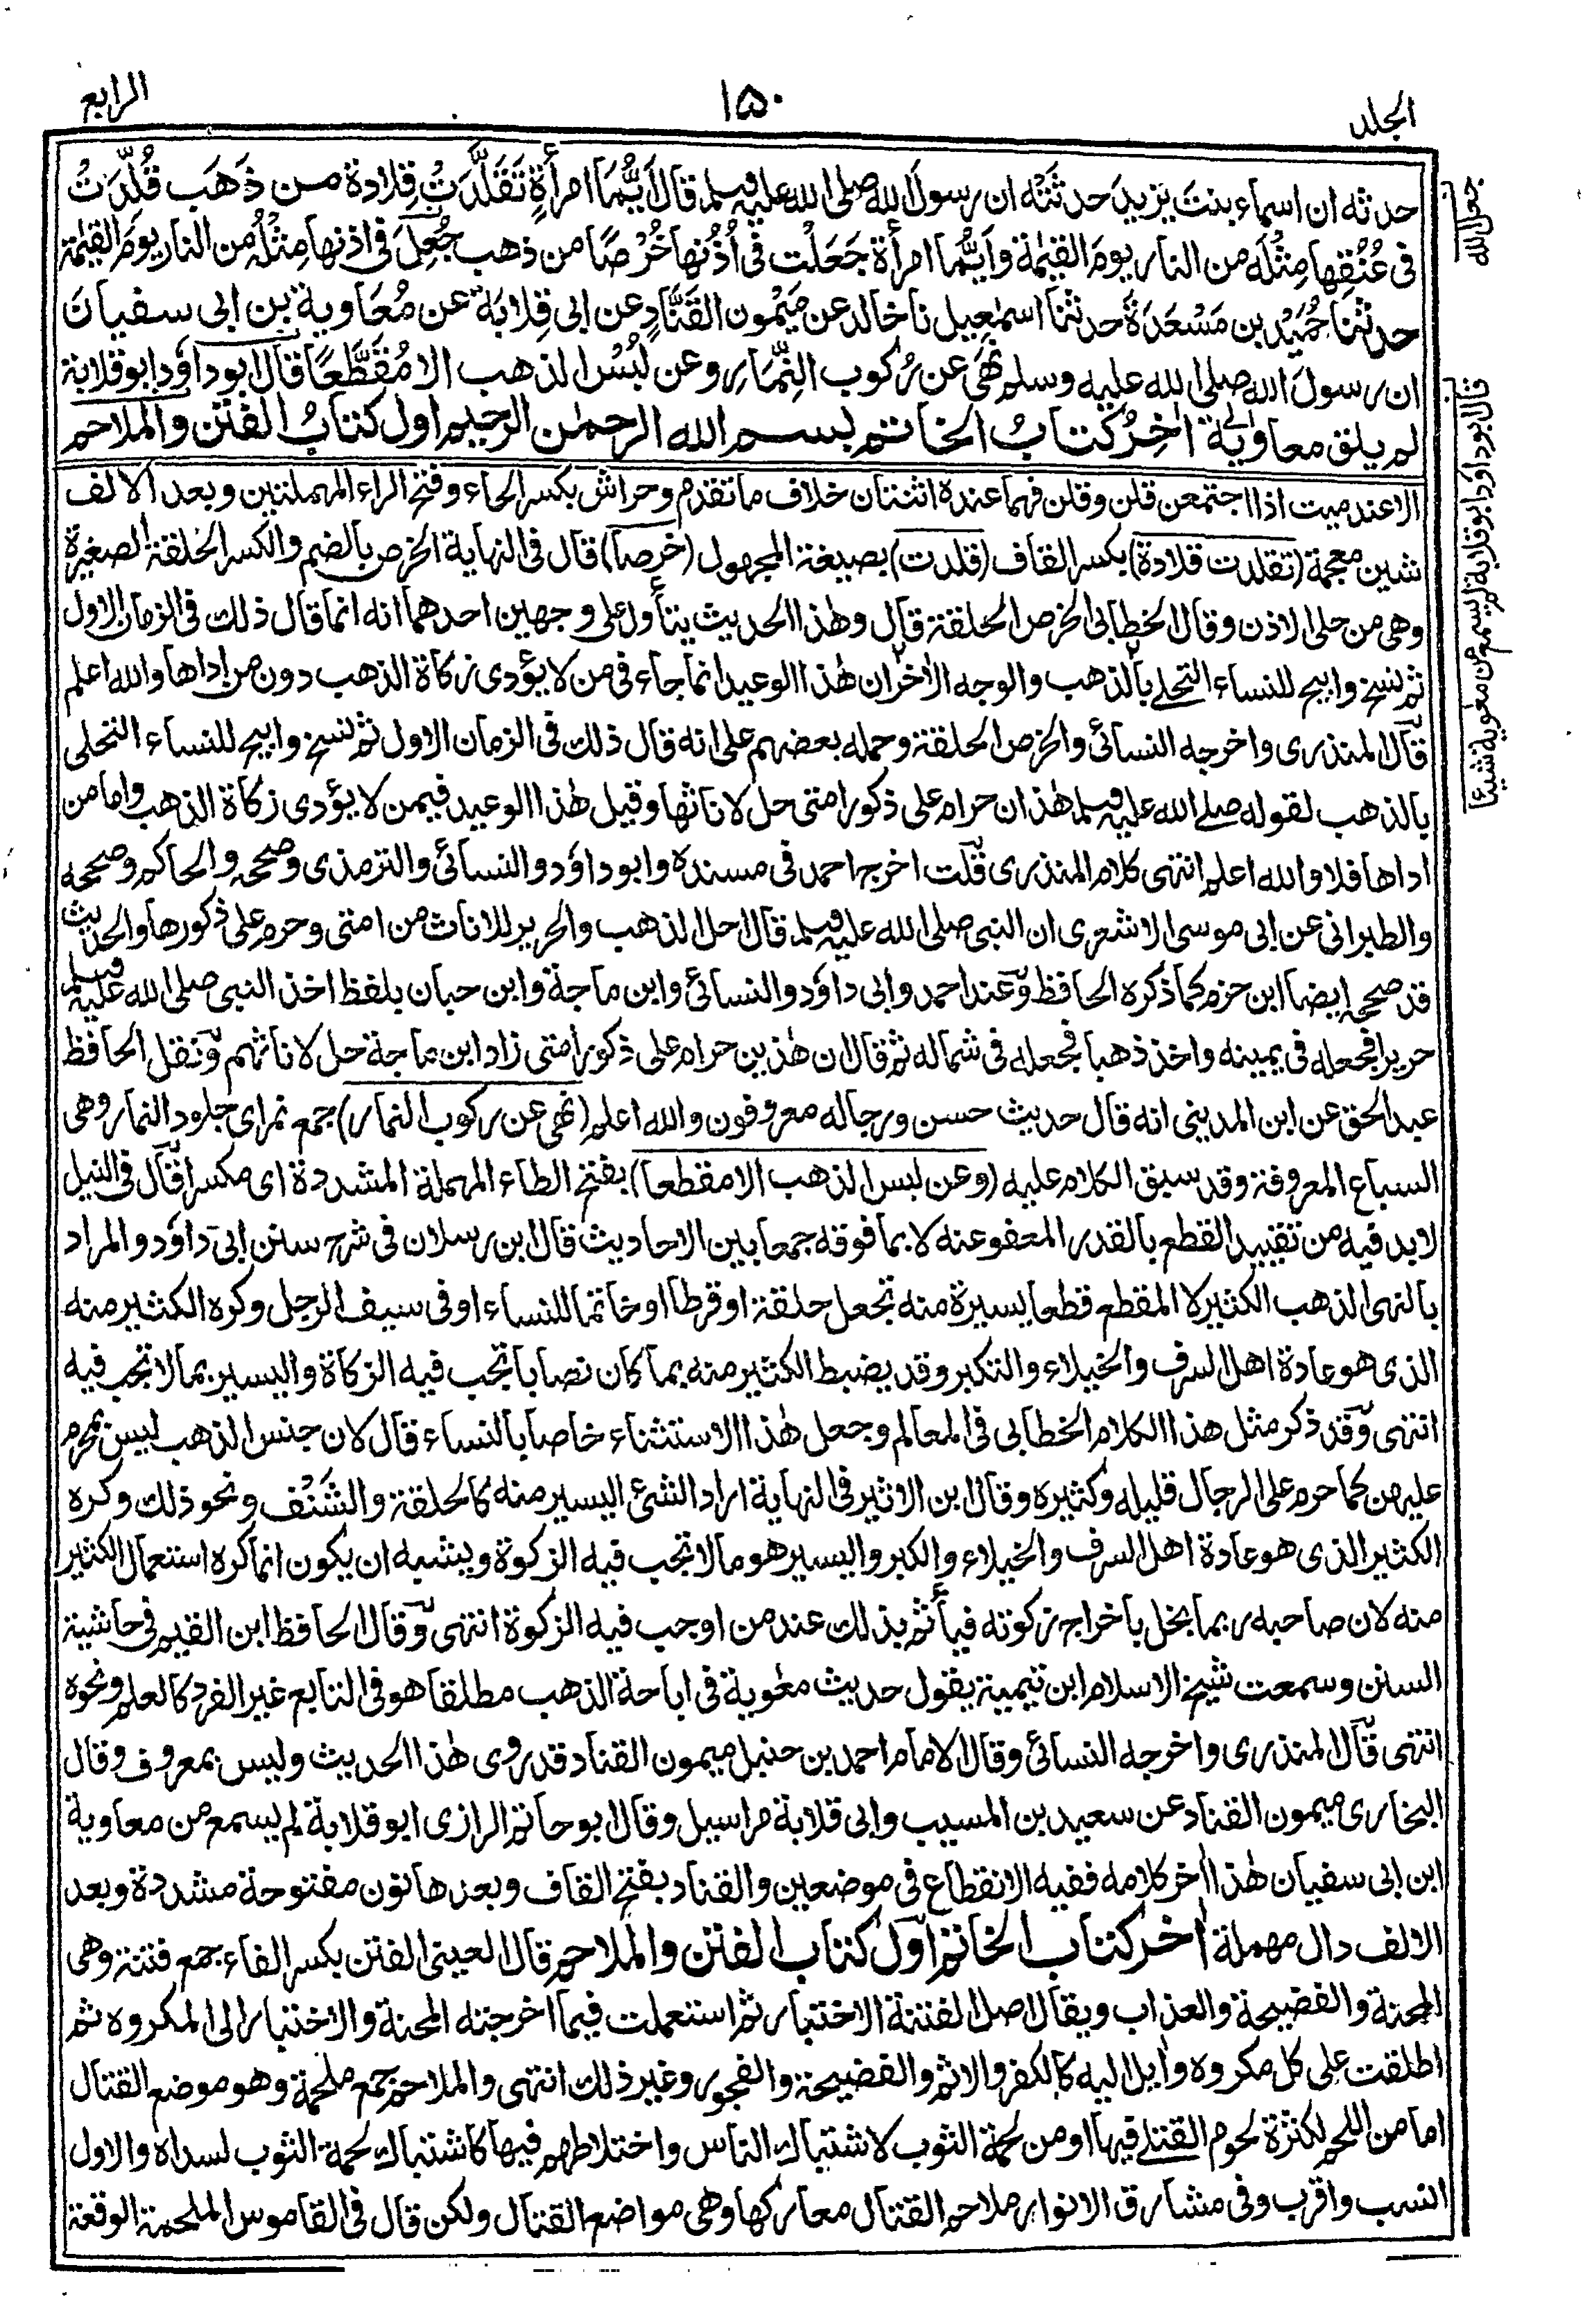 الجلد
١٥٠
الرابع
حدثه ان اسماء بنت يزيد حدثته ان رسول الله صلى الله عليه وسلم قال اَيُّمَا امرأةٍ تَقَلَّدَتْ قِلادة من ذَهَب قُلِّدَتْ
فى عُنُقِها مِثْلَه من النار يومَ القيٰمة وايُّما امرأة جَعَلَت فى اُذُنِها خُرْصًا من ذهب جُعِلَ فى اذنها مِثْلُه من النار يومَ القيٰمة
حدثنا حُمَيْد بن مَسْعَدَة حدثنا اسمٰعيل نا خالد عن مَيْمون القَنَّادِ عن ابى قِلابَة عن مُعَاوية بن ابى سفيان
ان رسولَ الله صلى الله عليه وسلم نَهَى عن رُكوب النِّمَار وعن لُبْس الذهب الا مُقَطَّعًا قال ابو داؤد ابو قلابة
لم يلق معاوية اٰخِرُ كتابُ الخاتم بسم الله الرحمٰن الرحيم اول كتابُ الفتن والملاحم
الا عند ميت اذا اجتمعن قلن وقلن فهما عنده اثنتان خلاف ما تقدم وحراش بكسر الحاء وفتح الراء المهملتين وبعد الالف
شين معجمة (تقلدت قلادة) بكسر القاف (قلدت) بصيغة المجهول (خرصا) قال فى النهاية الخرص بالضم والكسر الحلقة الصغيرة
وهى من حلى الاذن وقال الخطابى الخرص الحلقة قال وهٰذا الحديث يتأول على وجهين احدهما انه انما قال ذلك فى الزمان الاول
ثم نسخ وابيح للنساء التحلے بالذهب والوجه الاٰخران هٰذا الوعيد انما جاء فى من لا يؤدى زكاة الذهب دون من اداها والله اعلم
قال المنذرى واخرجه النسائى والخرص الحلقة وحمله بعضهم على انه قال ذلك فى الزمان الاول ثم نسخ وابيح للنساء التحلى
بالذهب لقوله صلے الله عليه وسلم هٰذان حرام على ذكور امتى حل لاناثها وقيل هٰذا الوعيد فيمن لا يؤدى زكاة الذهب واما من
اداها فلا والله اعلم انتهى كلام المنذرى قلت اخرج احمد فى مسنده وابو داؤد والنسائى والترمذى وصححه والحاكم وصححه
والطبرانى عن ابى موسى الاشعرى ان النبى صلى الله عليه وسلم قال احل الذهب والحرير للاناث من امتى وحرم على ذكورها والحديث
قد صححه ايضا ابن حزم كما ذكره الحافظ وعند احمد وابى داؤد والنسائى وابن ماجة وابن حبان بلفظ اخذ النبى صلى الله عليه وسلم
حريرا فجعله فى يمينه واخذ ذهبا فجعله فى شماله ثم قال ان هٰذين حرام على ذكور امتى زاد ابن ماجة حل لاناثهم ونقل الحافظ
عبد الحق عن ابن المدينى انه قال حديث حسن ورجاله معروفون والله اعلم (نهى عن ركوب النمار) جمع نمر اى جلود النمار وهى
السباع المعروفة وقد سبق الكلام عليه (وعن لبس الذهب الا مقطعا) بفتح الطاء المهملة المشددة اى مكسرا قال فى النيل
لا بد فيه من تقييد القطع بالقدر المعفو عنه لا بما فوقه جمعا بين الاحاديث قال ابن رسلان فى شرح سنن ابى داؤد والمراد
بالنهى الذهب الكثير لا المقطع قطعا يسيرة منه تجعل حلقة او قرطا او خاتما للنساء او فى سيف الرجل وكره الكثير منه
الذى هو عادة اهل السرف والخيلاء والتكبر وقد يضبط الكثير منه بما كان نصابا تجب فيه الزكاة واليسير بما لا تجب فيه
انتهى وقد ذكر مثل هذا الكلام الخطابى فى المعالم وجعل هٰذا الاستثناء خاصا بالنساء قال لان جنس الذهب ليس بمحرم
عليهن كما حرم على الرجال قليله وكثيره وقال ابن الاثير فى النهاية اراد الشئ اليسير منه كالحلقة والشَنْف ونحو ذلك وكره
الكثير الذى هو عادة اهل السرف والخيلاء والكبر واليسير هو ما لا تجب فيه الزكوة ويشبه ان يكون انما كره استعمال الكثير
منه لان صاحبه ربما بخل باخراج زكوته فيأثم بذلك عند من اوجب فيه الزكوة انتهى وقال الحافظ ابن القيم فى حاشية
السنن وسمعت شيخ الاسلام ابن تيمية يقول حديث معٰوية فى اباحة الذهب مطلقا هو فى التابع غير الفرد كالعلم ونحوه
انتهى قال المنذرى واخرجه النسائى وقال الامام احمد بن حنبل ميمون القناد قد روى هٰذا الحديث وليس بمعروف وقال
البخارى ميمون القناد عن سعيد بن المسيب وابى قلابة مراسيل وقال ابو حاتم الرازى ابو قلابة لم يسمع من معاوية
ابن ابى سفيان هٰذا اٰخر كلامه ففيه الانقطاع فى موضعين والقناد بفتح القاف وبعدها نون مفتوحة مشددة وبعد
الالف دال مهملة اٰخر كتاب الخاتم اول كتاب الفتن والملاحم قال العينى الفتن بكسر الفاء جمع فتنة وهى
المحنة والفضيحة والعذاب ويقال اصل الفتنة الاختبار ثم استعملت فيما اخرجته المحنة والاختبار الى المكروه ثم
اطلقت على كل مكروه واٰيل اليه كالكفر والاثم والفضيحة والفجور وغير ذلك انتهى والملاحم جمع ملحمة وهو موضع القتال
اما من اللحم لكثرة لحوم القتلے فيها او من لحمة الثوب لاشتباك الناس واختلاطهم فيها كاشتباك لحمة الثوب لسداه والاول
انسب واقرب وفى مشارق الانوار ملاحم القتال معاركها وهى مواضع القتال ولكن قال فى القاموس الملحمة الوقعة
جعل الله
قال ابو داؤد ابو قلابة لم يسمع من معٰوية شيئا